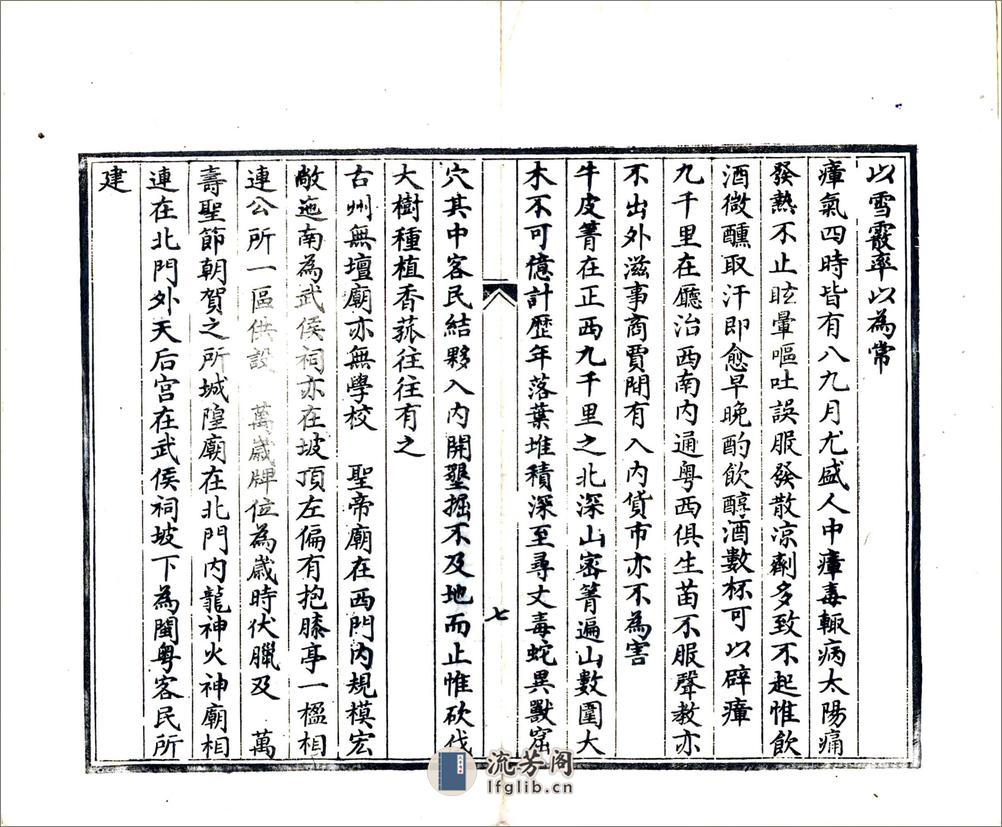 以雪霰率以為常
瘴氣四時皆有八九月尤盛人中瘴毒輙病太陽痛
發熱不止眩暈嘔吐誤服發散凉劑多致不起惟飲
酒微醺取汗即愈早晚酌飲醇酒數杯可以辟瘴
九千里在廳治西南內通粵西俱生苗不服聲教亦
不出外滋事商賈間有入內貨市亦不為害
牛皮箐在正西九千里之北深山密箐遍山數圍大
木不可億計歷年落葉堆積深至尋丈毒蛇異獸窟
七
穴其中客民結夥入內開墾掘不及地而止惟砍伐
大樹種植香蕈往往有之
古州無壇廟亦無學校　聖帝廟在西門內規模宏
敞迤南為武侯祠亦在坡頂左偏有抱膝亭一楹相
連公所一區供設　萬歲牌位為歲時伏臘及　萬
壽聖節朝賀之所城隍廟在北門內龍神火神廟相
連在北門外天后宮在武侯祠坡下為閩粵客民所
建
流芳阁
lfglib.cn